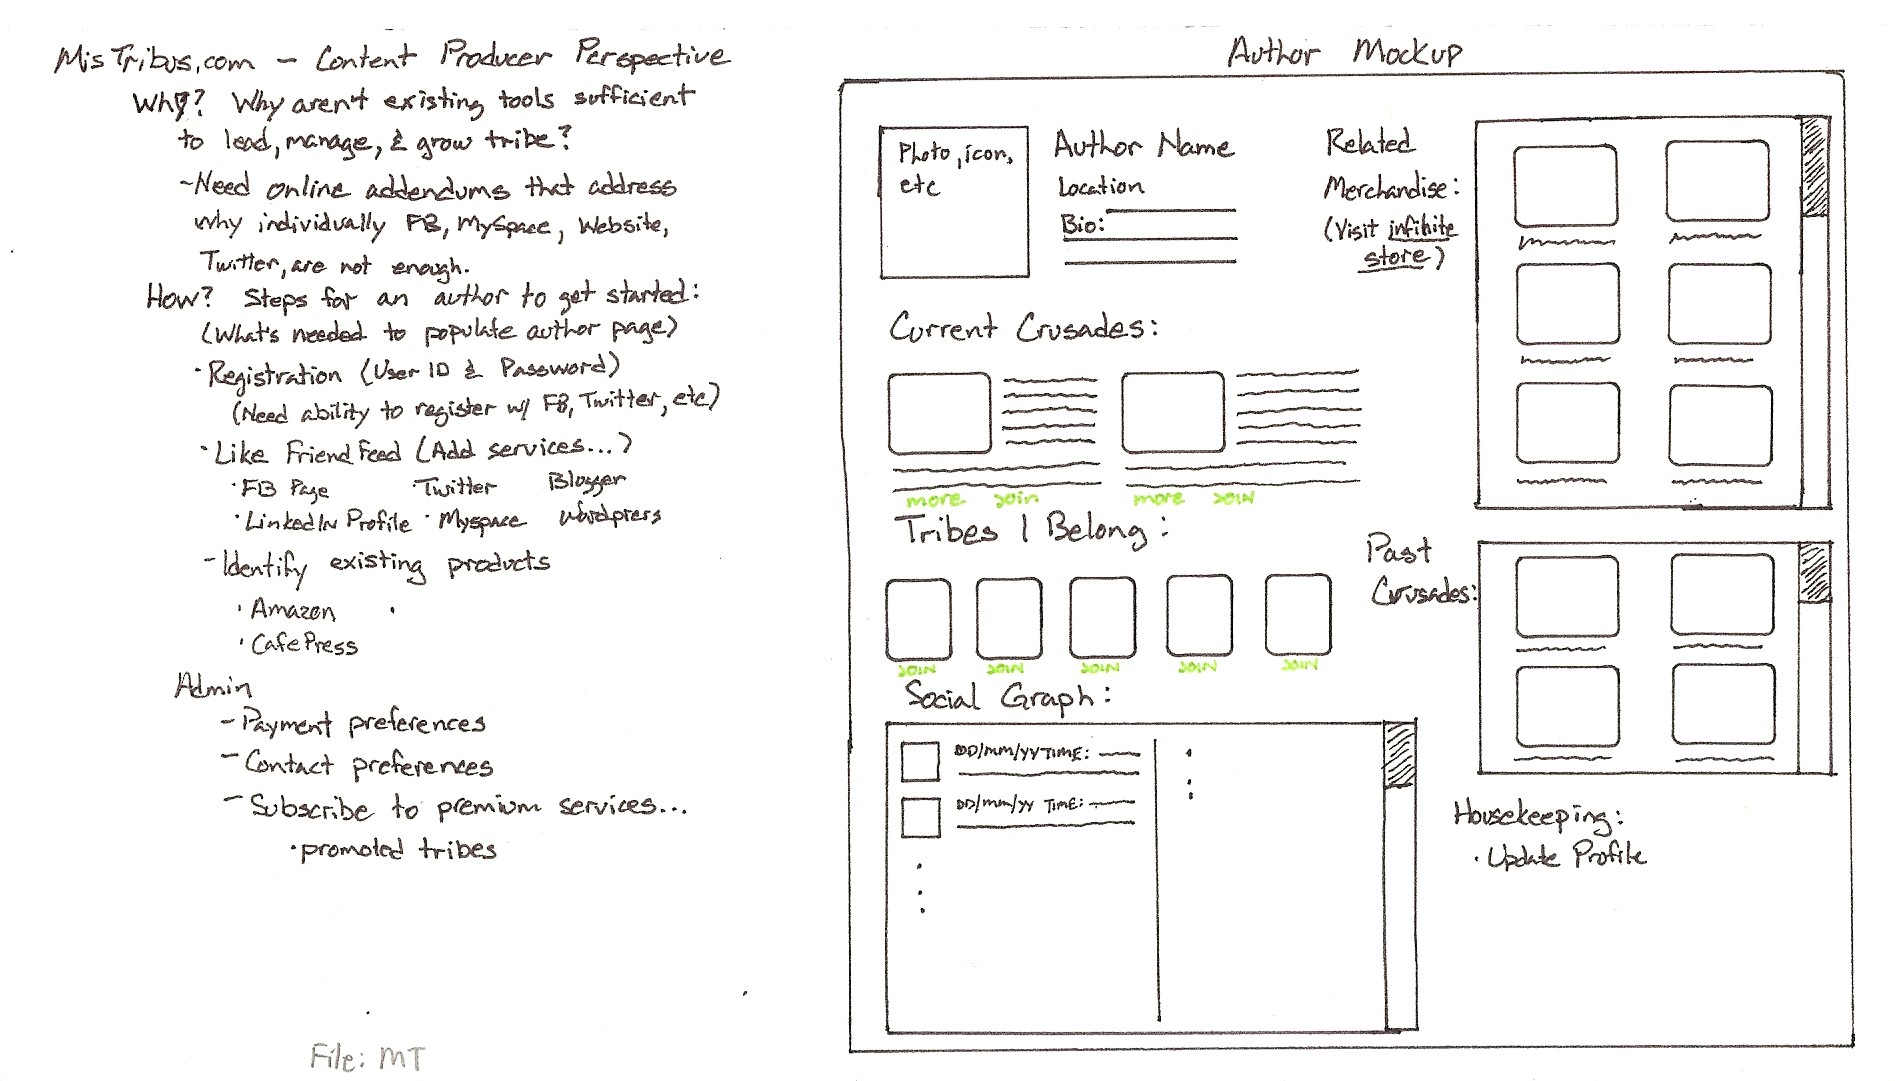 MisTribus.com - Content Producer Perspective
Why? Why aren't existing tools sufficient
to lead, manage, & grow tribe?
-Need online addendums that address
why individually FB, MySpace, Website,
Twitter, are not enough.
How? Steps for an author to get started:
(What's needed to populate author page)
· Registration (User ID & Password)
(Need ability to register w/ FB, Twitter, etc)
· Like FriendFeed (Add services...)
· FB Page · Twitter Blogger
· LinkedIn Profile · Myspace Wordpress
- Identify existing products
· Amazon ·
· CafePress
Admin
- Payment preferences
- Contact preferences
- Subscribe to premium services...
· promoted tribes
File: MT
Author Mockup
Photo, icon,
etc
Author Name
Location
Bio:
Related
Merchandise:
(Visit infinite
store)
Current Crusades:
more join more join
Tribes I Belong:
join join join join join
Past
Crusades:
Social Graph:
DD/mm/yy TIME:
DD/mm/yy TIME:
Housekeeping:
· Update Profile